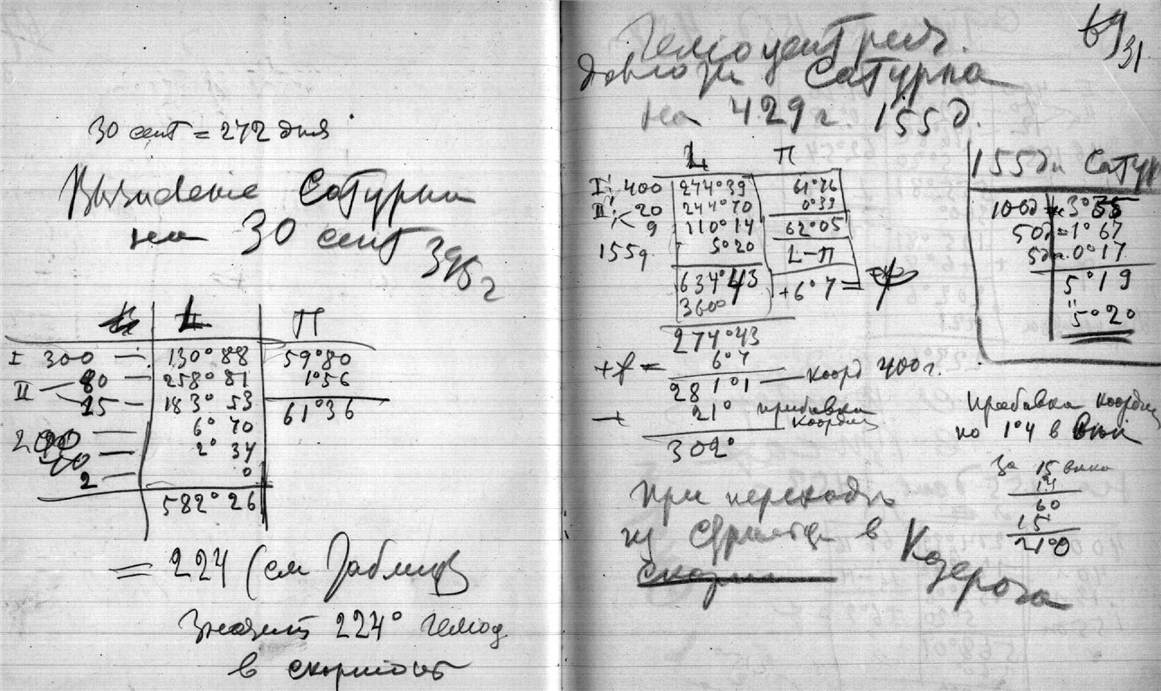 30 сент = 272 дня
Сатурна
на 30 сент 395 г
L П
I 300 — 130°88 59°80
II — 80 258°81 1°56
15 183°53 61°36
6°70
2°34
2 0
582°26
= 224 (см Таблицу
Значит 224° гелиоц
в скорпионе
69
31
Гелиоцентрич.
Долгота Сатурна
на 429 г. 155 д.
L П
I 400 274°39 61°26
II 20 244°70 0°39
9 110°14 62°05
155 д 5°20 L-П
634°43 +6°7 =
360°
274°43
+f = 6°7
281°1 — коорд 400 г.
+ 21° прибавка
коорди
302°
При переходе
из Стрельца в Козерога
155 дн Сатур
100 д = 3°35
50 д = 1°67
5 дн. 0°17
5°19
"
5°20
прибавка координ
по 1°4 в век
За 15 веков
14
60
15
21°0